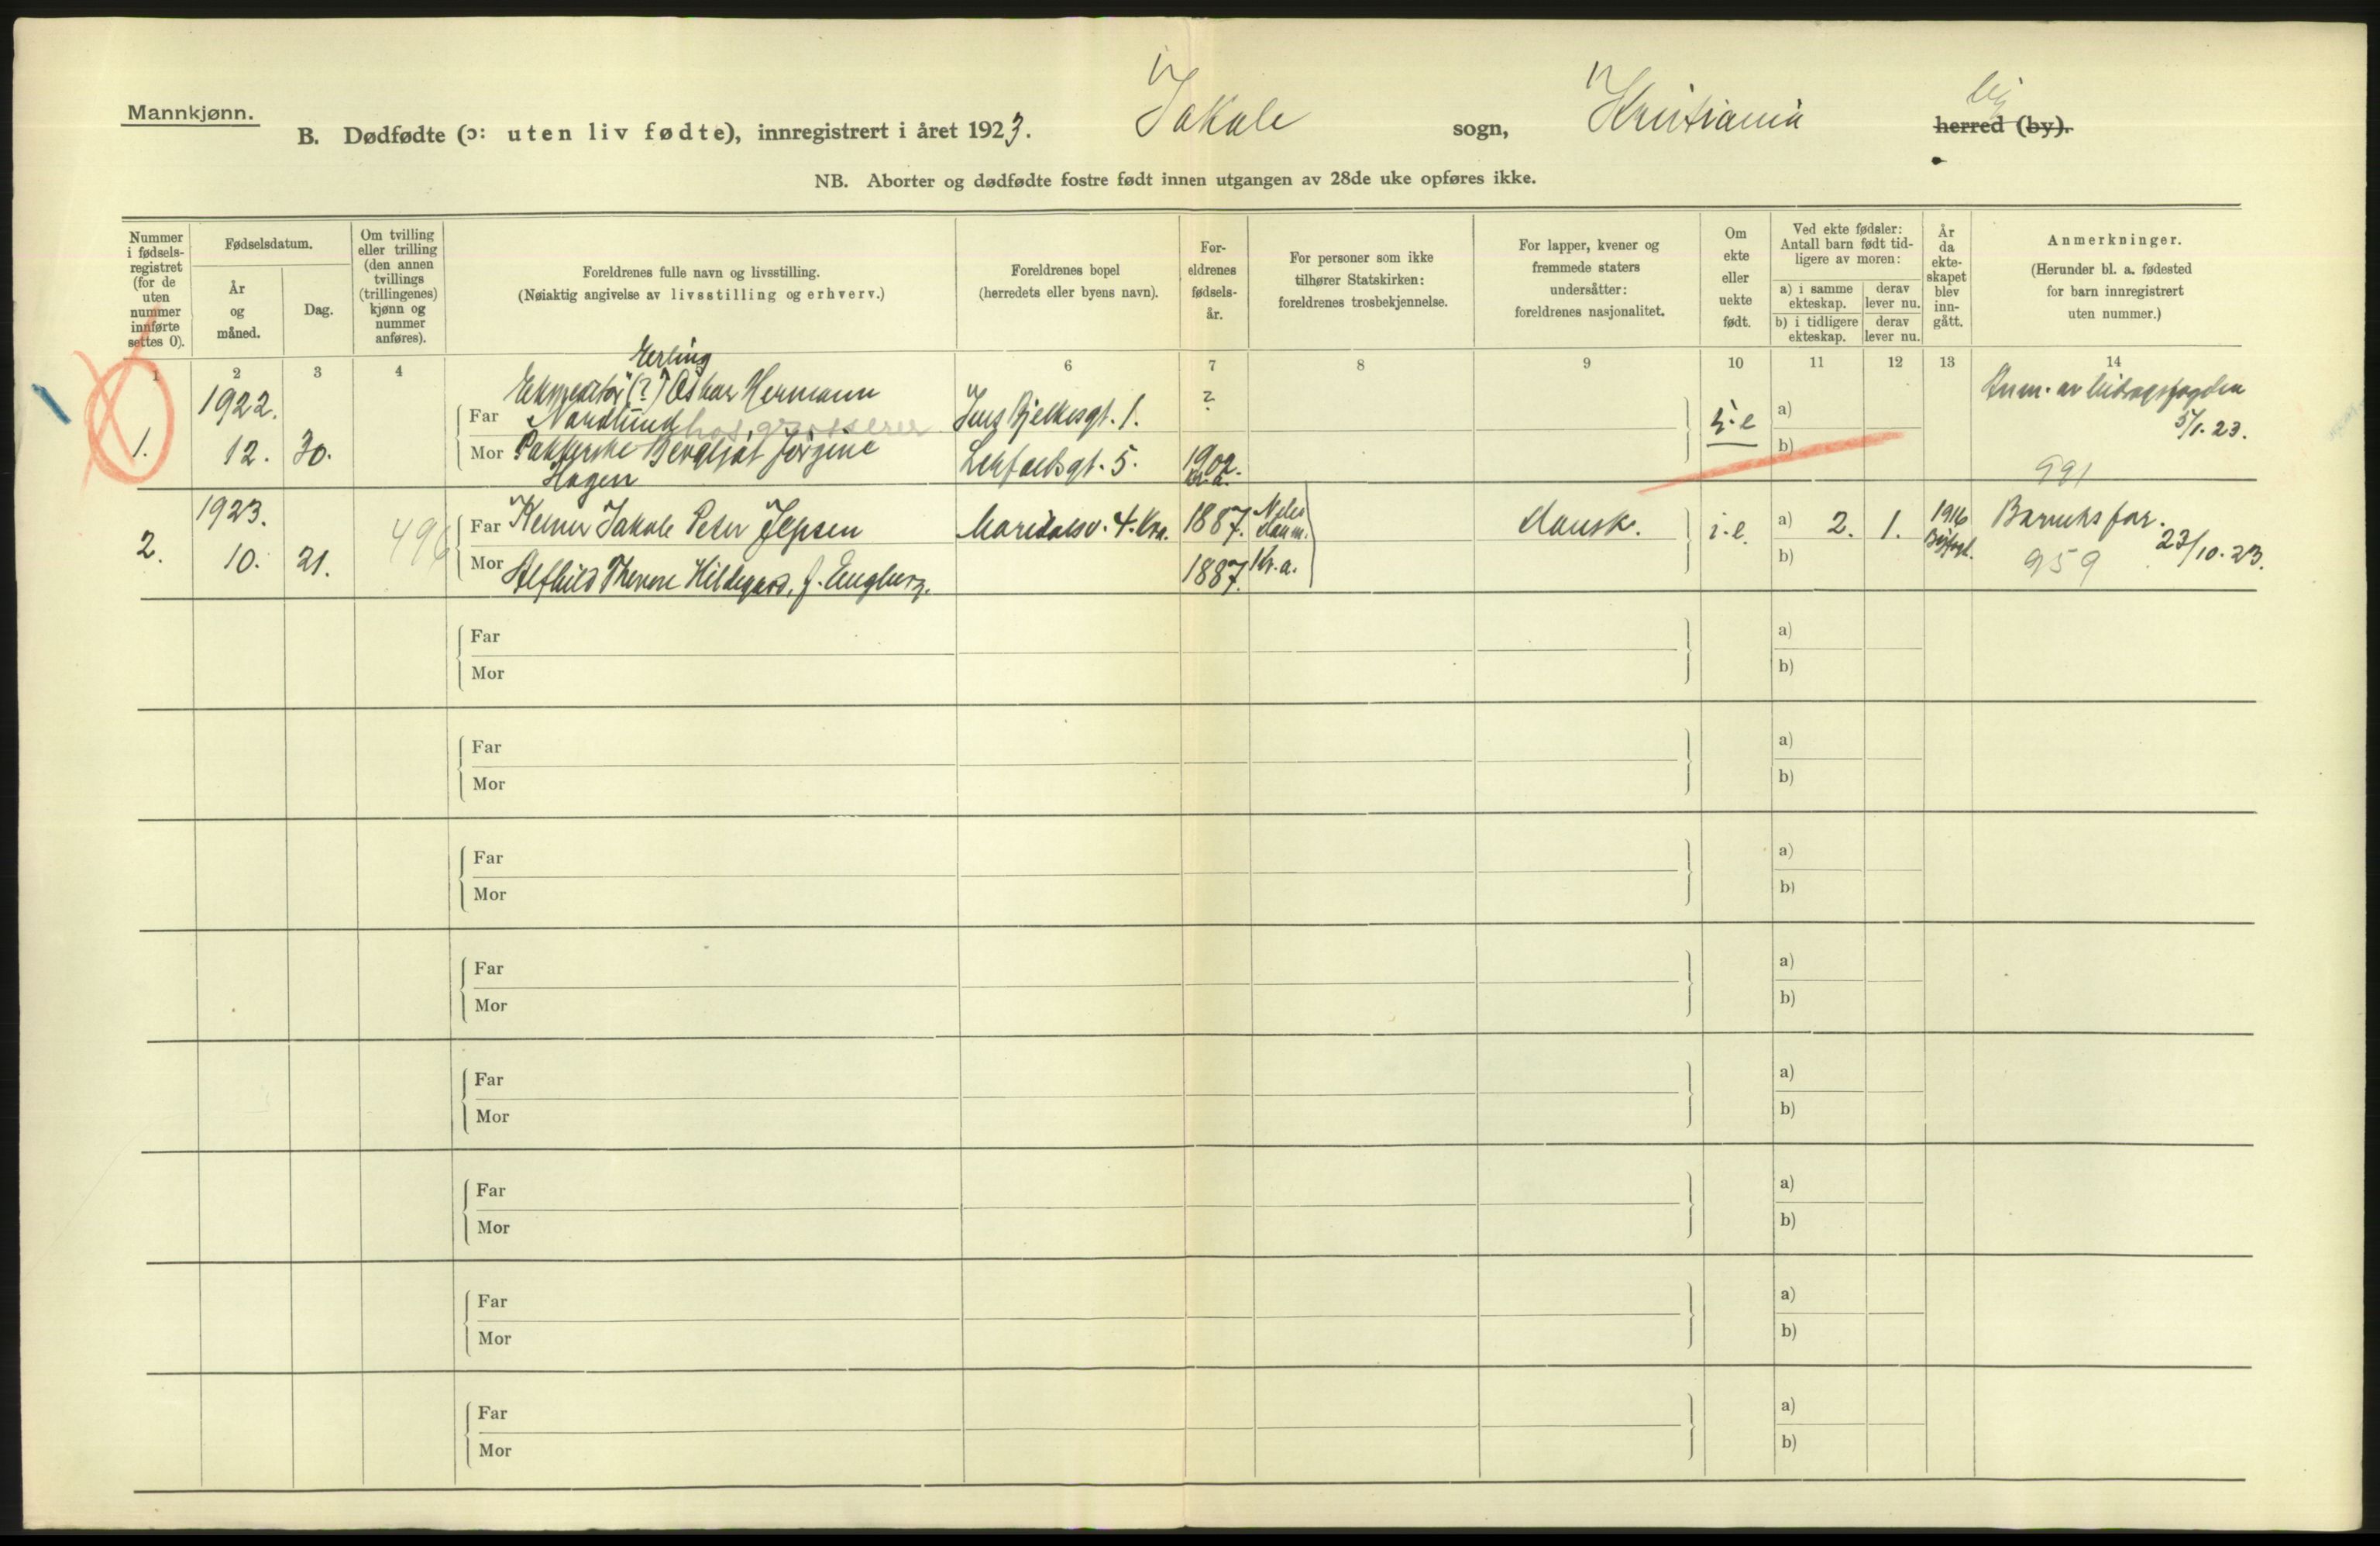 Mannkjønn.
B. Dødfødte (ɔ: uten liv fødte), innregistrert i året 1923. Jakobs sogn, Kristiania by herred (by).
NB. Aborter og dødfødte fostre født innen utgangen av 28de uke opføres ikke.
Nummer i fødsels-registret (for de uten nummer innførte settes 0).
Fødselsdatum.
År og måned.
Dag.
Om tvilling eller trilling (den annen tvillings (trillingenes) kjønn og nummer anføres).
Foreldrenes fulle navn og livsstilling.
(Nøiaktig angivelse av livsstilling og erhverv.)
Foreldrenes bopel
(herredets eller byens navn).
For-eldrenes fødsels-år.
For personer som ikke tilhører Statskirken: foreldrenes trosbekjennelse.
For lapper, kvener og fremmede staters undersåtter: foreldrenes nasjonalitet.
Om ekte eller uekte født.
Ved ekte fødsler: Antall barn født tid-ligere av moren:
a) i samme ekteskap. derav lever nu.
b) i tidligere ekteskap. derav lever nu.
År da ekte-skapet blev inn-gått.
Anmerkninger.
(Herunder bl. a. fødested for barn innregistrert uten nummer.)
1 2 3 4 6 7 8 9 10 11 12 13 14
1. 1922. 12. 30.
Erling
Ekspeditør (?) Oskar Hermann
Far Nordlund hos grosserer Jens Bjelkesgt. 1. ?
Mor Pakkerske Bergljot Jørgine
Hagen 5. 1902. Kr.a.
u.e a) b)
Anm. av bidragsfogden
5/1.23.
991
2. 1923. 10. 21. 496
Far Kelner Jakob Peter Jepsen Maridalsv. 4. Kra. 1887. Danm.
Mor Alfhild Therese Hildegard, f. Engberg. 1887. Kr.a.
Dansk. i.e. a) 2. 1. b) 1916 Byfogd.
Barnets far.
23/10.23.
959
Far a)
Mor b)
Far a)
Mor b)
Far a)
Mor b)
Far a)
Mor b)
Far a)
Mor b)
Far a)
Mor b)
Far a)
Mor b)
Far a)
Mor b)